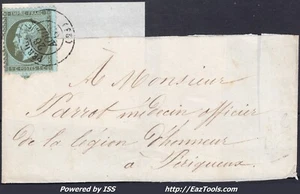 EMPIRE FRANC
A Monsieur
Parrot médecin officier
de la légion d'honneur
à Périgueux
Powered by ISS
http://EazTools.com